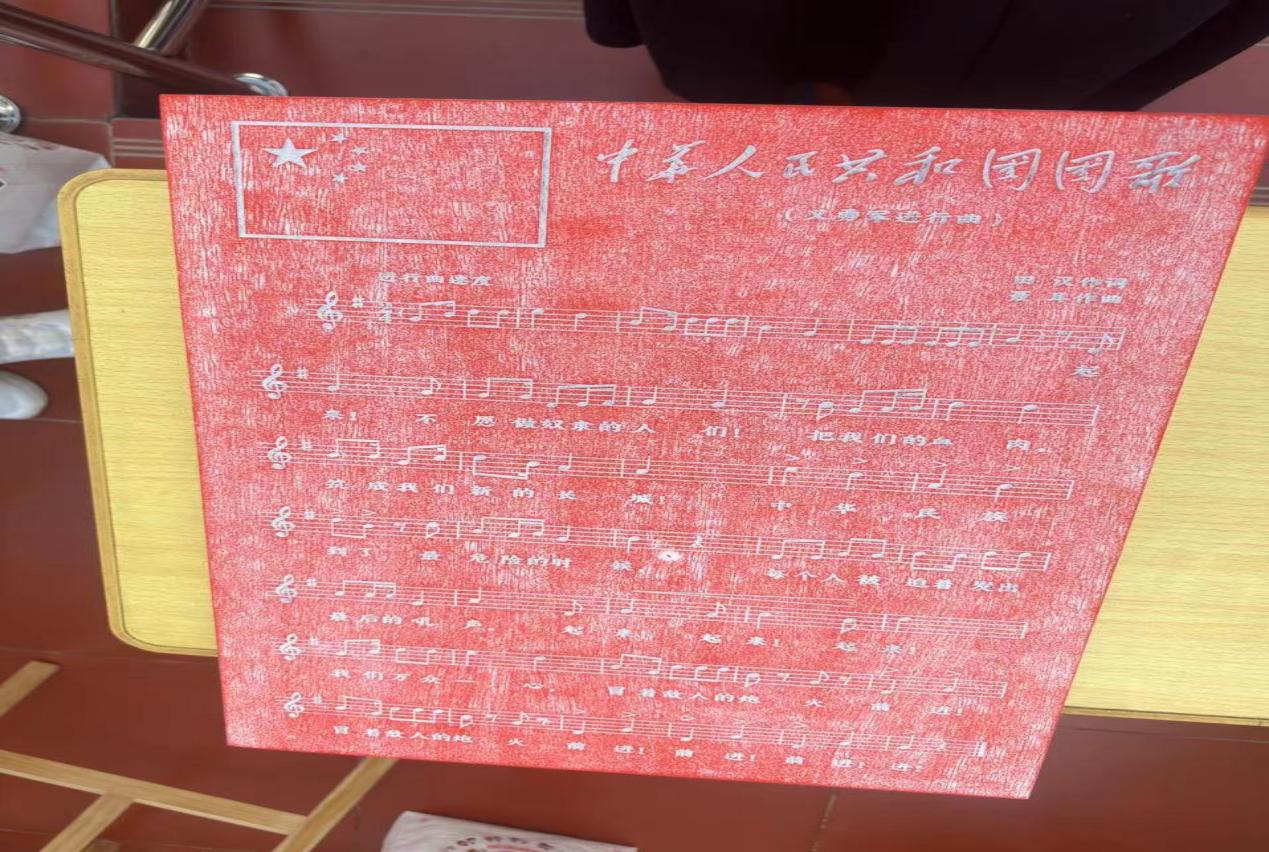 中华人民共和国国歌
(义勇军进行曲)
进行曲速度
田 汉作词
聂 耳作曲
起
来! 不 愿 做奴隶的人 们! 把我们的血 肉,
筑 成我们 新 的 长 城! 中 华 民 族
到了 最 危险的时 候, 每个人被 迫着 发出
最后的 吼 声。 起 来! 起 来! 起 来!
我 们万众一 心, 冒着敌人的炮 火 前 进!
冒 着敌人的炮 火 前 进! 前 进! 前 进! 进!